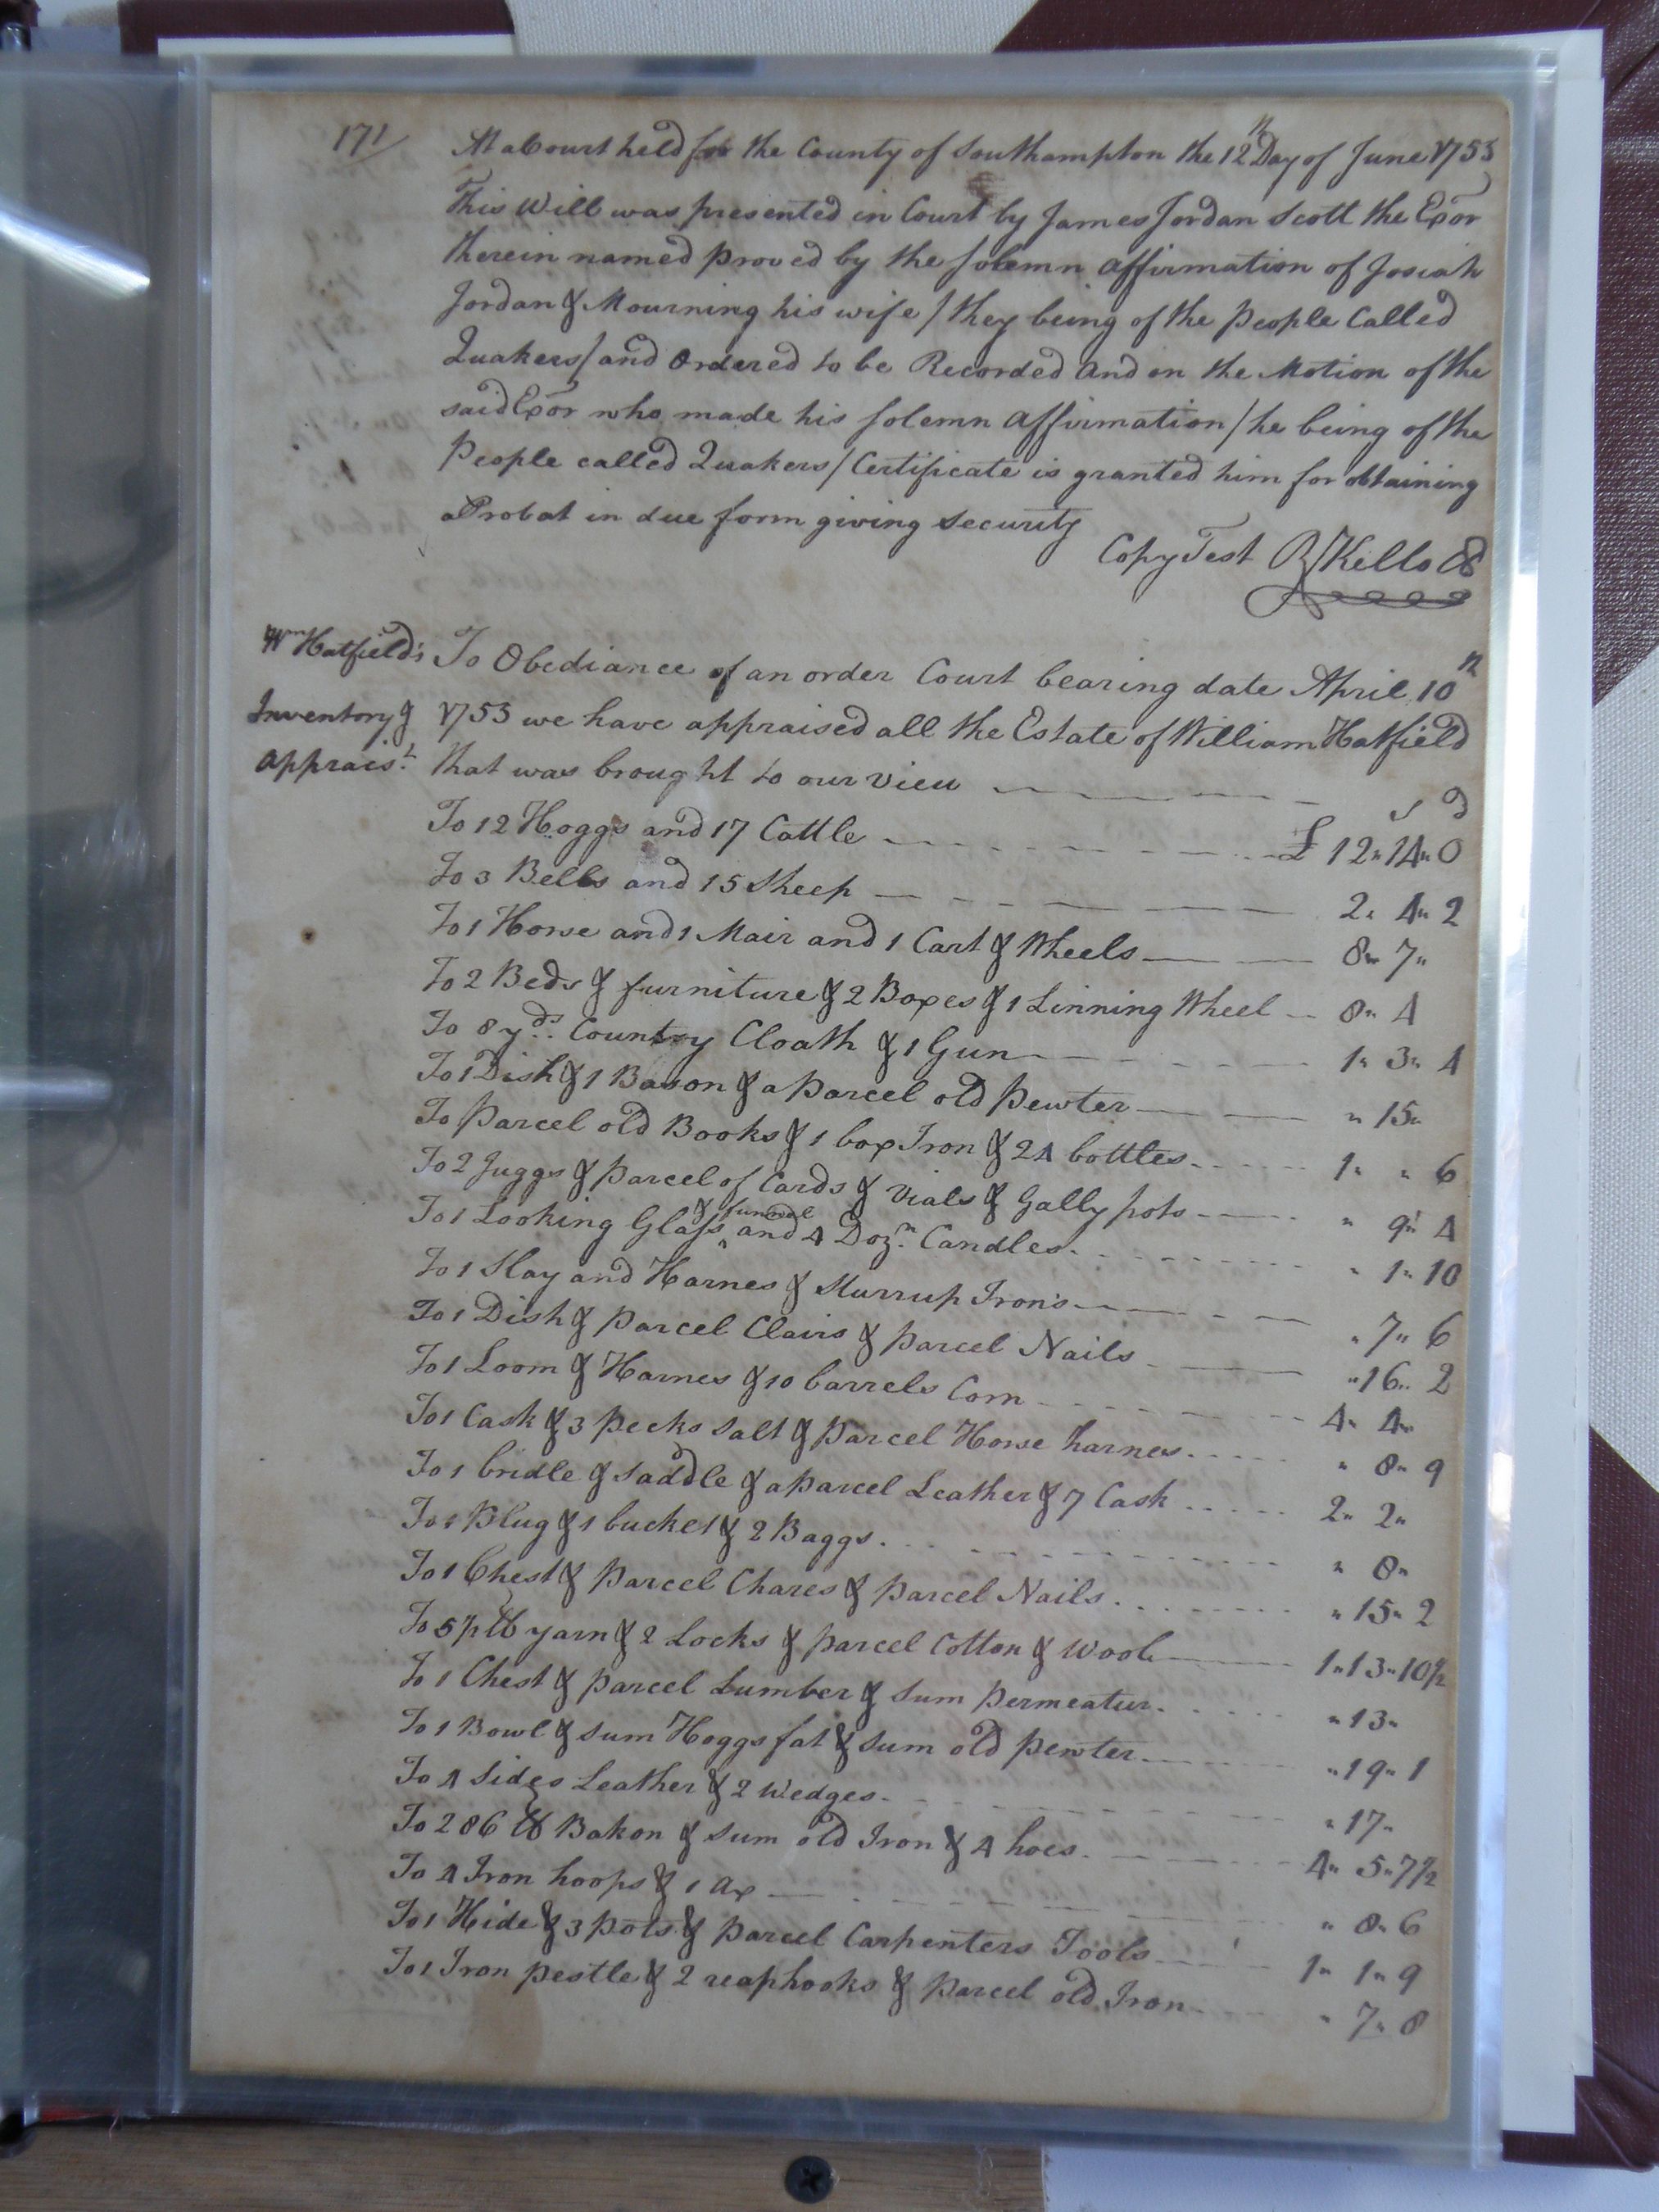 171
At a Court held for the County of Southampton the 12th Day of June 1753
This Will was presented in Court by James Jordan Scott the Exor
therein named proved by the solemn affirmation of Josiah
Jordan & Mourning his wife / they being of the People Called
Quakers / and Ordered to be Recorded and on the Motion of the
said Exor who made his solemn affirmation / he being of the
People called Quakers / Certificate is granted him for obtaining
a Probat in due form giving security
Copy Test R Kello
Wm Hatfield's Inventory & Appraist.
To Obediance of an order Court bearing date April 10th
1753 we have appraised all the Estate of William Hatfield
that was brought to our view
s d
To 12 Hoggs and 17 Cattle £ 12 " 14 " 0
To 3 Bells and 15 Sheep 2 " 4 " 2
To 1 Horse and 1 Mair and 1 Cart & Wheels 8 " 7 "
To 2 Beds & furniture & 2 Boxes & 1 Linning Wheel 8 " 4
To 8 yds. Country Cloath & 1 Gun 1 " 3 " 4
To 1 Dish & 1 Bason & a Parcel old Pewter " 15 "
To Parcel old Books & 1 box Iron & 24 bottles 1 " " 6
To 2 Juggs & Parcel of Cards & Vials & Gally pots " 9 " 4
To 1 Looking Glass & funnel and 4 Dozn. Candles " 1 " 10
To 1 Slay and Harnes & Sturrup Irons " 7 " 6
To 1 Dish & Parcel Clairs & parcel Nails " 16 " 2
To 1 Loom & Harnes & 10 barrels Corn 4 " 4 "
To 1 Cask & 3 Pecks Salt & Parcel Horse harnes " 8 " 9
To 1 bridle & Saddle & a Parcel Leather & 7 Cask 2 " 2 "
To 1 Plug & 1 bucket & 2 Baggs " 8 "
To 1 Chest & Parcel Chares & Parcel Nails " 15 " 2
To 5 lb yarn & 2 Locks & parcel Cotton & Wool 1 " 13 " 10½
To 1 Chest & parcel Lumber & Sum Permeatur " 13 "
To 1 Bowl & Sum Hoggs fat & Sum old pewter " 19 " 1
To 4 Sides Leather & 2 Wedges " 17 "
To 286 lb Bakon & Sum old Iron & 4 hoes 4 " 5 " 7½
To 4 Iron hoops & 1 Ax " 8 " 6
To 1 Hide & 3 pots & parcel Carpenters Tools 1 " 1 " 9
To 1 Iron pestle & 2 reaphooks & parcel old Iron " 7 " 8